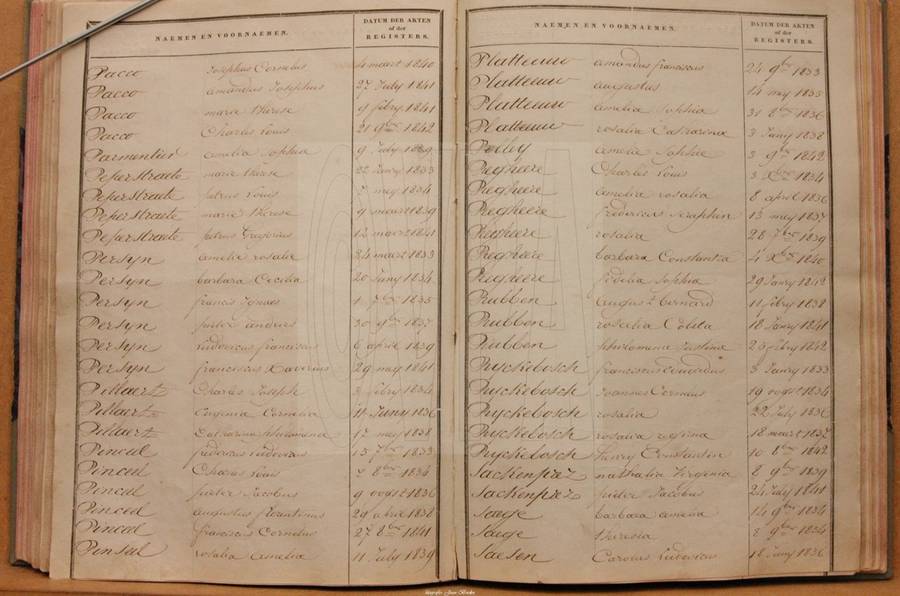 NAEMEN EN VOORNAEMEN.
DATUM DER AKTEN
of der
REGISTERS.
Pacco Josephus Cornelus 4 maart 1840
Pacco amandus Josephus 27 July 1841
Pacco marie thérese 9 fibry 1841
Pacco Charles Louis 21 9bre 1842
Parmentier amelia Sophia 9 July 1839
Peperstraete marie thérese 22 Janry 1833
Peperstraete petrus Louis 7 mey 1834
Peperstraete marie thérese 9 maart 1839
Peperstraete petrus Gregorius 12 maart 1841
Persyn amelie rosalie 24 maart 1833
Persyn barbara Cecilia 20 Juny 1834
Persyn francis Ignaes 1 7bre 1835
Persyn pieter andries 30 9bre 1837
Persyn Ludovicus franciscus 6 april 1839
Persyn franciscus Xaverius 29 mey 1841
Pillaert Charles Joseph 3 fibry 1834
Pillaert Eugenia Cornelia 11 Juny 1836
Pillaert Catharina philomena 17 mey 1838
Pinceel fredericus Ludovicus 13 7bre 1833
Pinceel Charles Louis 2 8bre 1834
Pinceel pieter Jacobus 9 oogst 1836
Pinceel augustus florentinus 24 april 1838
Pinceel francies Cornelus 27 8bre 1841
Pinseel rosalia amelia 11 July 1839
NAEMEN EN VOORNAEMEN.
DATUM DER AKTEN
of der
REGISTERS.
Platteeuw amandus franciscus 24 9bre 1833
Platteeuw augustus 14 mey 1835
Platteeuw amelia Sophia 31 8bre 1836
Platteeuw rosalia Catharina 3 Juny 1838
amelie Sophie 3 9bre 1842
Regheere Charles Louis 3 Xbre 1834
Regheere amelie rosalia 8 april 1836
Regheere fredericus Seraphin 13 mey 1837
Regheere rosalia 28 7bre 1839
Regheere barbara Constantia 4 Xbre 1840
Regheere fidelia Sophia 29 Janry 1842
Rubben august bernard 11 fibry 1838
Rubben rosalia Coleta 18 Janry 1841
Rubben philomena Justina 23 fibry 1842
Ryckebosch franciscus eduardus 3 Janry 1833
Ryckebosch Joannes Cornelus 19 oogst 1834
Ryckebosch rosalia 22 July 1836
Ryckebosch rosalia regina 18 maart 1837
Ryckebosch henry Constantin 10 8bre 1842
Sackenprez nathalia Virginia 8 9bre 1839
Sackenprez pieter Jacobus 24 July 1841
Saege barbara amelia 14 9bre 1834
Saege theresia 2 9bre 1834
Saesen Carolus Ludovicus 18 Juny 1836